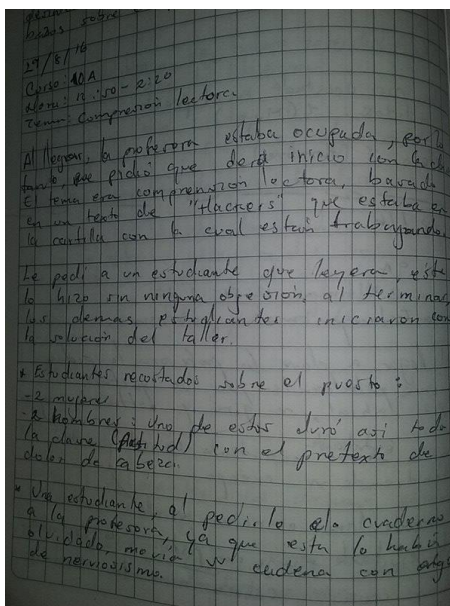 bados sobre
19/8/16
Curso: 10A
Hora: 12:50 - 2:20
Tema: Compresión lectora.
Al llegar, la profesora estaba ocupada, por lo
tanto, me pidió que dera inicio con la
El tema era comprension lectora, basado
en un texto de "Hackers" que estaba en
la cartilla con la cual estan trabajando.
Le pedi a un estudiante que leyera, este
lo hizo sin ninguna objesión, al terminar
los demas estudiantes iniciaron con
la solución del taller.
* Estudiantes recostados sobre el puesto:
- 2 mujeres
- 2 hombres: Uno de estos duró asi toda
la clase con el pretexto de
dolor de cabeza.
* Una estudiante, al pedirle el cuaderno
a la profesora, ya que esta lo había
olvidado, movía su cadena con
de nerviosismo.